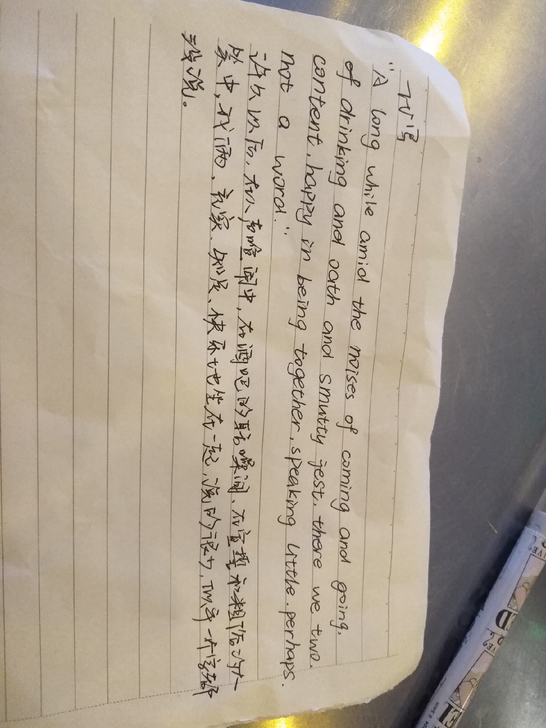 "A long while amid the noises of coming and going,
of drinking and oath and smutty jest. there we two.
content, happy in being together, speaking little, perhaps.
not a word."
许久以后，在人声喧闹中，在酒吧的
笑中，我们两、充实、知足、快乐地坐在一起，说的很少，
没说。